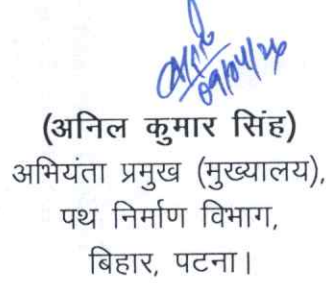 (अनिल कुमार सिंह)
अभियंता प्रमुख (मुख्यालय),
पथ निर्माण विभाग,
बिहार, पटना।